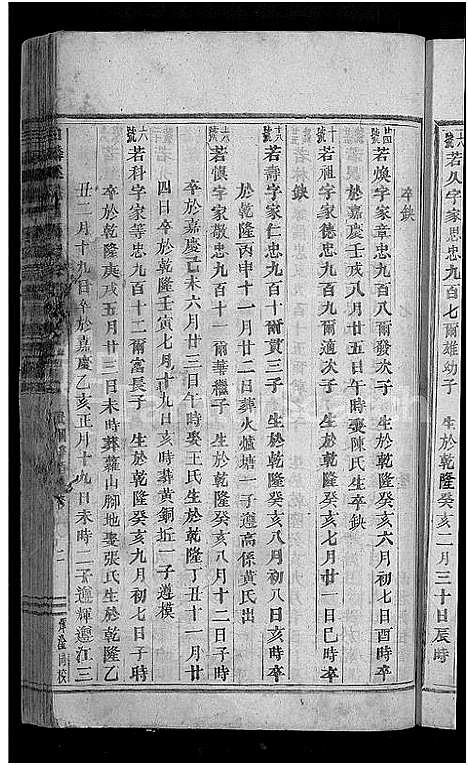 若人字家思忠九百七爾雄幼子 生於乾隆癸亥二月三十日辰時
卒缺
若煥字家章忠九百八爾發次子 生於乾隆癸亥六月初七日酉時卒
於嘉慶壬戌八月廿五日午時娶陳氏生卒缺
十號 若祖字家德忠九百九爾適次子 生於乾隆癸亥七月廿一日巳時卒
缺
若壽字家仁忠九百十爾貫三子 生於乾隆癸亥八月初八日亥時卒
於乾隆丙申十一月廿二日葬火爐塘一子遵高係黃氏出
若懷字家敬忠九百十一爾華繼子 生於乾隆癸亥八月十二日子時
卒於嘉慶己未六月廿三日午時娶王氏生於乾隆丁丑十一月廿
四日卒於乾隆壬寅七月十九日亥時葬黃銅坵一子遵模
六號 若科字家等忠九百十二爾富長子 生於乾隆癸亥九月初七日子時
卒於乾隆庚戌五月廿三日未時葬蘿山腳地娶張氏生於乾隆乙
丑二月十九日卒於嘉慶乙亥正月十九日未時二子遵輝遵江三
同校